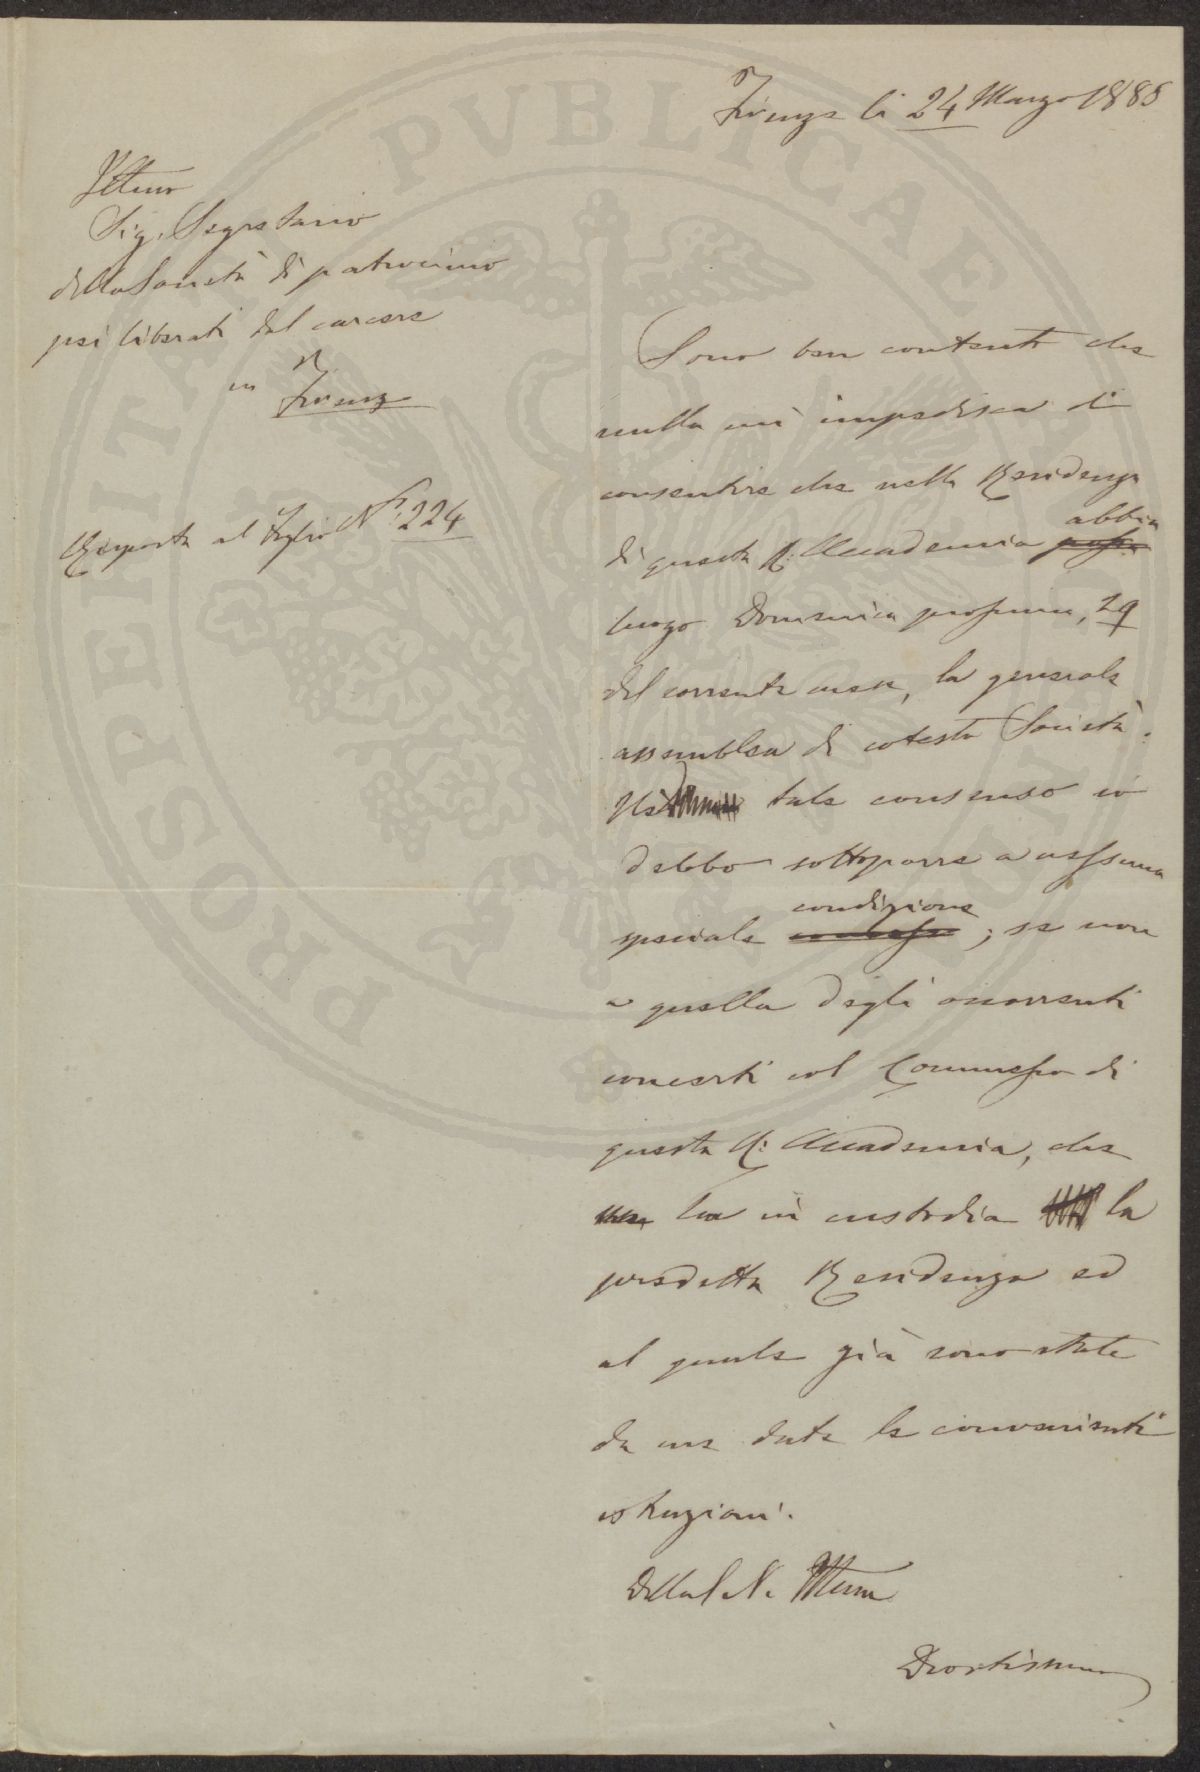 Firenze li 24 Marzo 1885
Illmo
Sig. Segretario
della Società di patrocinio
pei liberati dal carcere
in Firenze
Risposta al foglio N.º 224
Sono ben contento che
nulla mi impedisca di
consentire che nella Residenza
di questa R. Accademia possa abbia
luogo Domenica prossima, 29
del corrente mese, la generale
assemblea di cotesta Società.
Nè tale consenso io
debbo sottoporre a nessuna
speciale condizione; se non
a quella degli occorrenti
concerti col Commesso di
questa R. Accademia, che
ha in custodia la
predetta Residenza ed
al quale già sono state
da me date le convenienti
istruzioni.
Della S. V. Illma
Devotissimo
PROSPERITATI PVBLICAE